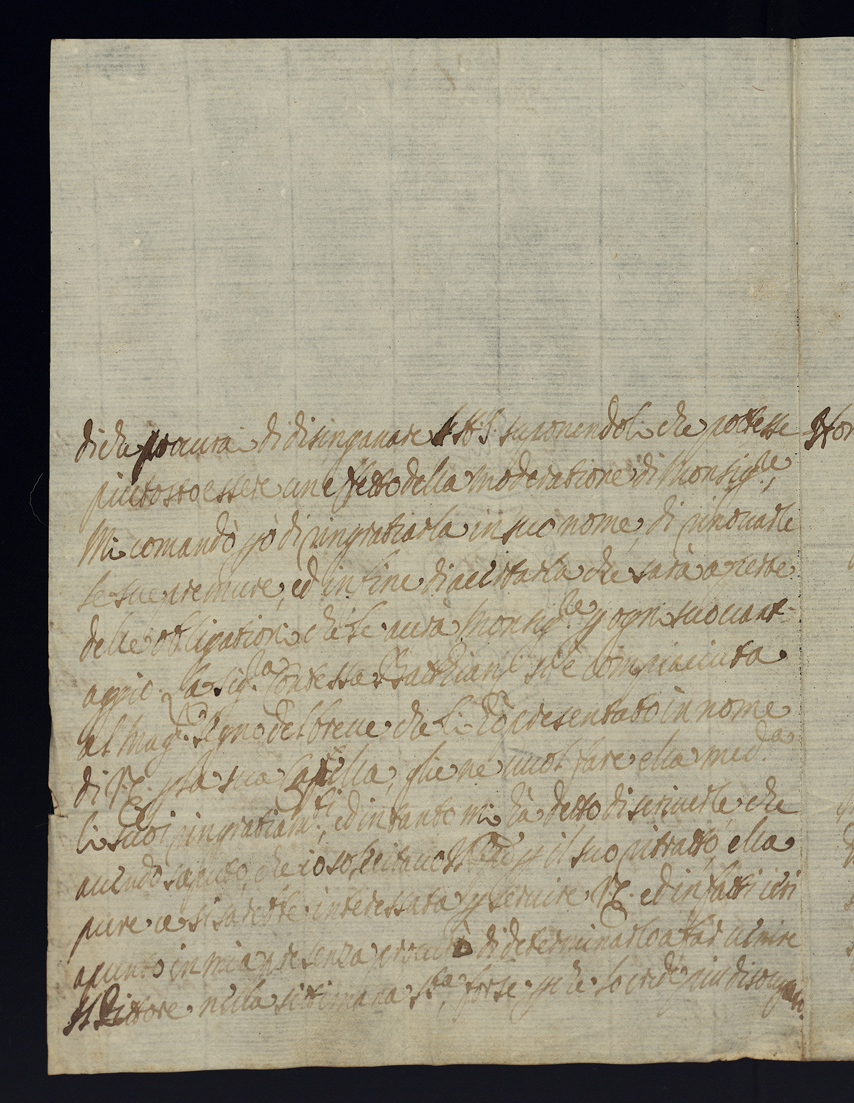 di che procurai di disinganare S. A. S. suponendoli che potesse
piutosto essere un effetto della moderatione di Monsig.re,
Mi comandò p.ò di ringratiarla in suo nome, di rinovarle
le sue premure, ed in fine di accertarla che sarà a parte
delle obligationi che le aurà Monsig.re p ogni suo uant-
aggio. La Sig.ra Contessa si è compiaciuta
al mag.r segno del breue che li hò presentato in nome
di V.E. p la sua Capella, gliene uuol fare ella med.ma
li suoi ringratiam.ti, ed intanto mi hà detto di scriuerle, che
auendo saputo, che io solecitauo p il suo ritratto, ella
pure ui si sarebbe interessata p seruire V.E. ed in fatti ieri
apunto in mia presenza procurò di determinarlo a far uenire
il Pittore nella settimana S.ta, forse p che lo crede piu disocupato.